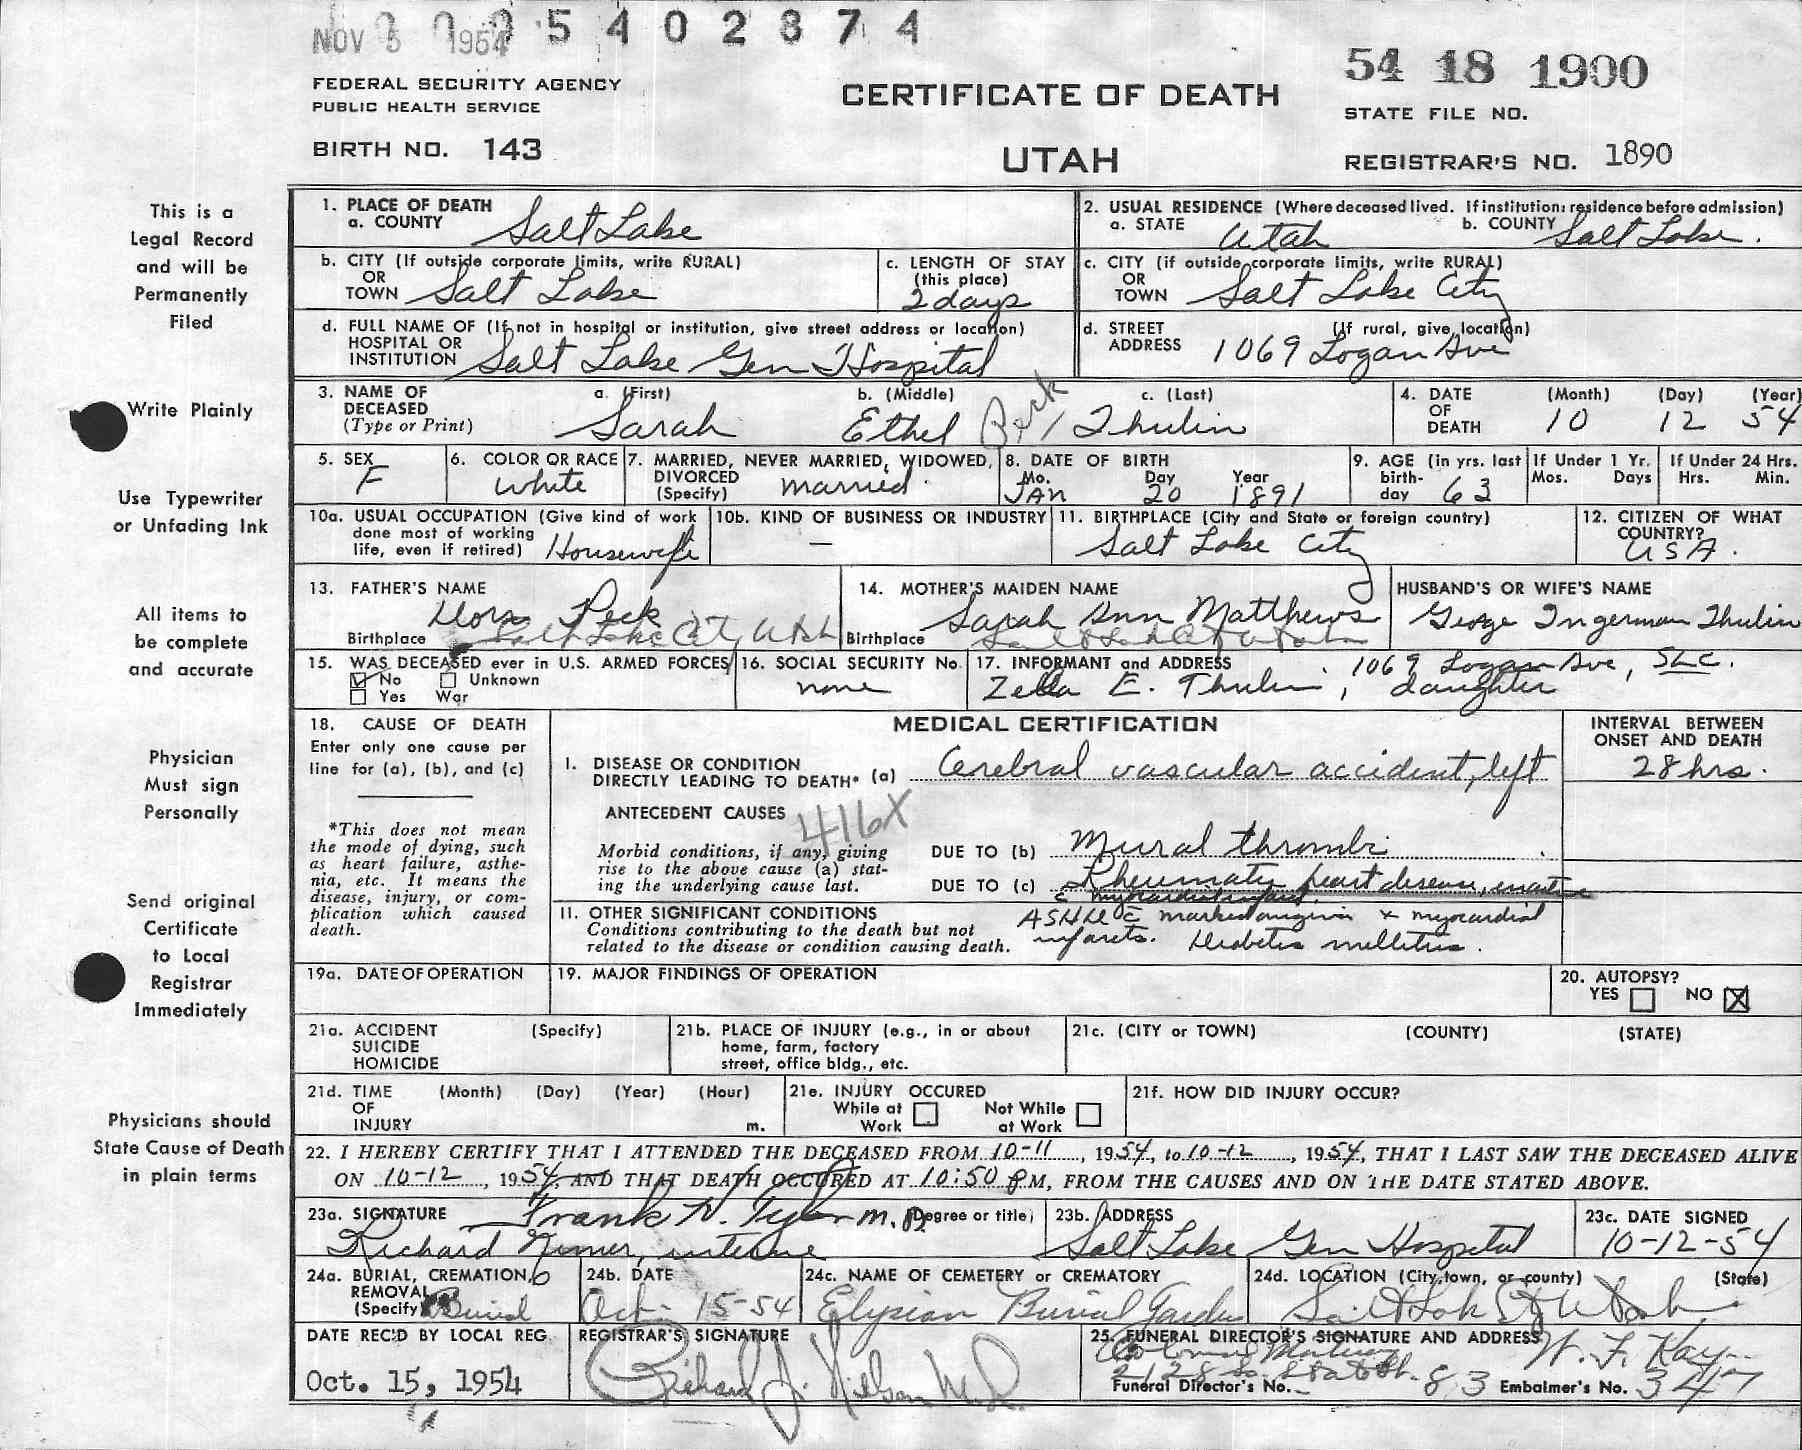 NOV 5 1954 5 4 0 2 8 7 4
54 18 1900
FEDERAL SECURITY AGENCY
PUBLIC HEALTH SERVICE
CERTIFICATE OF DEATH
STATE FILE NO.
BIRTH NO. 143
UTAH
REGISTRAR'S NO. 1890
This is a
Legal Record
and will be
Permanently
Filed
Write Plainly
Use Typewriter
or Unfading Ink
All items to
be complete
and accurate
Physician
Must sign
Personally
Send original
Certificate
to Local
Registrar
Immediately
Physicians should
State Cause of Death
in plain terms
1. PLACE OF DEATH
a. COUNTY Salt Lake
2. USUAL RESIDENCE (Where deceased lived. If institution: residence before admission)
a. STATE Utah b. COUNTY Salt Lake.
b. CITY (If outside corporate limits, write RURAL)
OR
TOWN Salt Lake
c. LENGTH OF STAY
(this place)
2 days
c. CITY (if outside corporate limits, write RURAL)
OR
TOWN Salt Lake City
d. FULL NAME OF (If not in hospital or institution, give street address or location)
HOSPITAL OR
INSTITUTION Salt Lake Gen Hospital
d. STREET (If rural, give location)
ADDRESS 1069 Logan Ave
3. NAME OF
DECEASED
(Type or Print)
a. (First) b. (Middle) c. (Last)
Sarah Ethel Peck Thulin
4. DATE
OF
DEATH
(Month) (Day) (Year)
10 12 54
5. SEX
F
6. COLOR OR RACE
white
7. MARRIED, NEVER MARRIED, WIDOWED,
DIVORCED
(Specify) married.
8. DATE OF BIRTH
Mo. Day Year
JAN 20 1891
9. AGE (in yrs. last
birth-
day 63
If Under 1 Yr.
Mos. Days
If Under 24 Hrs.
Hrs. Min.
10a. USUAL OCCUPATION (Give kind of work
done most of working
life, even if retired) Housewife
10b. KIND OF BUSINESS OR INDUSTRY
—
11. BIRTHPLACE (City and State or foreign country)
Salt Lake City
12. CITIZEN OF WHAT
COUNTRY?
USA.
13. FATHER'S NAME
Peck
Birthplace Salt Lake City, Utah
14. MOTHER'S MAIDEN NAME
Sarah Ann Matthews
Birthplace Salt Lake City Utah
HUSBAND'S OR WIFE'S NAME
George Ingerman Thulin
15. WAS DECEASED ever in U.S. ARMED FORCES
No Unknown
Yes War
16. SOCIAL SECURITY No.
none
17. INFORMANT and ADDRESS 1069 Logan Ave, SLC.
Zella E. Thulin, daughter
18. CAUSE OF DEATH
Enter only one cause per
line for (a), (b), and (c)
*This does not mean
the mode of dying, such
as heart failure, asthe-
nia, etc. It means the
disease, injury, or com-
plication which caused
death.
MEDICAL CERTIFICATION
INTERVAL BETWEEN
ONSET AND DEATH
28 hrs.
I. DISEASE OR CONDITION
DIRECTLY LEADING TO DEATH* (a) Cerebral vascular accident, left
ANTECEDENT CAUSES
416X
Morbid conditions, if any, giving
rise to the above cause (a) stat-
ing the underlying cause last.
DUE TO (b) Mural thrombi
DUE TO (c) Rheumatic heart disease, inactive
c myocardial infarct.
II. OTHER SIGNIFICANT CONDITIONS
Conditions contributing to the death but not
related to the disease or condition causing death.
ASHD c marked angina & myocardial
infarcts. Diabetes mellitus.
19a. DATE OF OPERATION
19. MAJOR FINDINGS OF OPERATION
20. AUTOPSY?
YES NO X
21a. ACCIDENT (Specify)
SUICIDE
HOMICIDE
21b. PLACE OF INJURY (e.g., in or about
home, farm, factory
street, office bldg., etc.
21c. (CITY or TOWN) (COUNTY) (STATE)
21d. TIME (Month) (Day) (Year) (Hour)
OF
INJURY m.
21e. INJURY OCCURED
While at Work
Not While at Work
21f. HOW DID INJURY OCCUR?
22. I HEREBY CERTIFY THAT I ATTENDED THE DECEASED FROM 10-11, 1954, to 10-12, 1954, THAT I LAST SAW THE DECEASED ALIVE
ON 10-12, 1954, AND THAT DEATH OCCURED AT 10:50 PM, FROM THE CAUSES AND ON THE DATE STATED ABOVE.
23a. SIGNATURE Frank H. Tyler M.D. (Degree or title)
Richard Nimer, interne
23b. ADDRESS
Salt Lake Gen Hospital
23c. DATE SIGNED
10-12-54
24a. BURIAL, CREMATION,
REMOVAL
(Specify) Burial
24b. DATE
Oct. 15-54
24c. NAME OF CEMETERY or CREMATORY
Elysian Burial Gardens
24d. LOCATION (City, town, or county) (State)
Salt Lake City Utah
DATE REC'D BY LOCAL REG.
Oct. 15, 1954
REGISTRAR'S SIGNATURE
Richard J. Nielsen M.D.
25. FUNERAL DIRECTOR'S SIGNATURE AND ADDRESS
Colonial Mortuary W. F. Kay
2128 So. State St.
Funeral Director's No. 83 Embalmer's No. 347